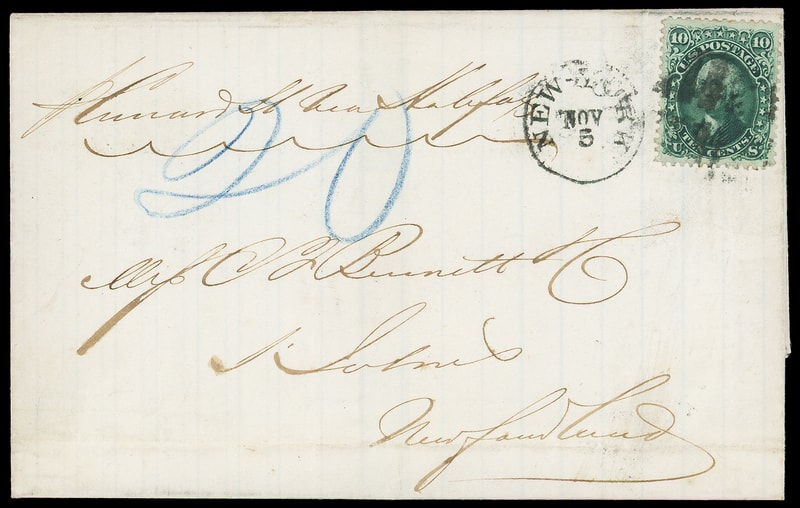 10 10
U.S. POSTAGE
TEN CENTS
U. S.
NEW-YORK
NOV
5
p Cunard St via Halifax
20
Mess C F Bennett & C
St Johns
Newfoundland